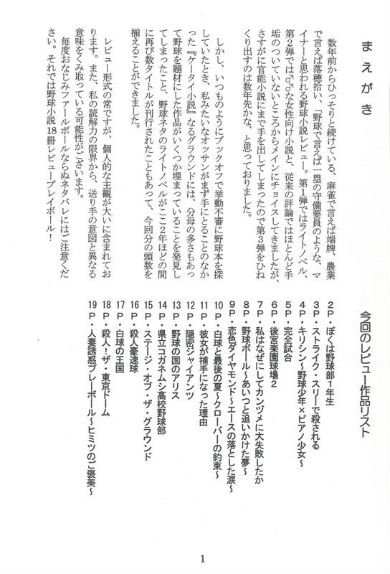 まえがき
数年前からひっそりと続けている、麻雀で言えば端牌、農業
で言えば落穂拾い、「野球で言えば一塁の守備要員のような、マ
イナーと思われる野球小説レビュー。第1弾ではライトノベル、
第2弾では♂♂な女性向け小説と、従来の評論ではほとんど手
垢のついていないところからメインにチョイスしてきましたが、
さすがに官能小説にまで手を出してしまったので第3弾をひね
くり出すのは数年先かな、と思っておりました。
しかし、いつものようにブックオフで挙動不審に野球本を探
していたとき、私みたいなオッサンがまず手にとることのなか
った『ケータイ小説』なるグラウンドには、分母の多さもあっ
て野球を題材にした作品がいくつか埋まっていることを発見し
てしまったこと、野球ネタのライトノベルがここ2年ほどの間
に再び数タイトルが刊行されたこともあって、今回分の頭数を
揃えることができました。
レビュー形式の常ですが、個人的な主観が大いに含まれてお
ります。また、私の読解力の限界から、送り手の意図と異なる
意味をくみ取っている可能性がございます。
毎度おなじみファールボールならぬネタバレにはご注意くだ
さい。それでは野球小説18冊レビュープレイボール!
今回のレビュー作品リスト
2P・ぼくは野球部1年生
3P・ストライク・スリーで殺される
4P・キリシン~野球少年×ピアノ少女~
5P・完全試合
6P・後宮楽園球場2
7P・私はなぜにしてカンヅメに大失敗したか
8P・野球ボール~あいつと追いかけた夢~
9P・恋色ダイヤモンド~エースの落とした涙~
10P・白球と最後の夏~クローバーの約束~
11P・彼女が捕手になった理由
12P・隠密ジャイアンツ
13P・野球の国のアリス
14P・県立コガネムシ高校野球部
15P・ステージ・オブ・ザ・グラウンド
16P・殺人豪速球
17P・白球の王国
18P・殺人!ザ・東京ドーム
19P・人妻誘惑プレーボール~ヒミツのご褒美~
1